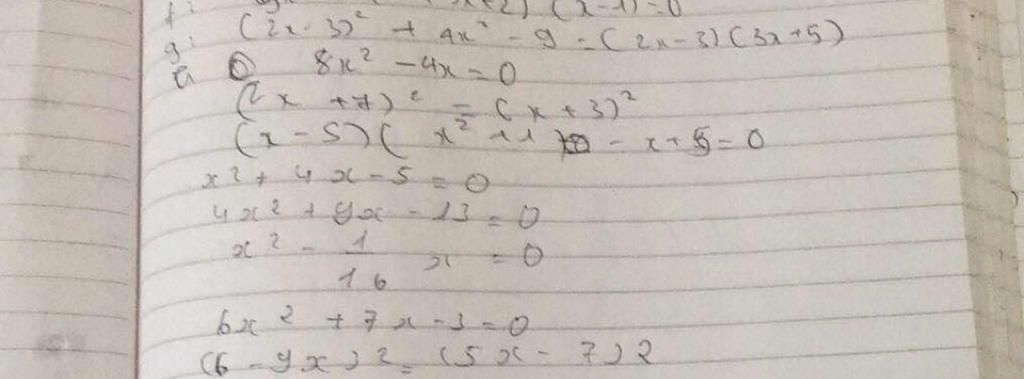 x+2) (x-1)=0
g: (2x-3)² + 4x² - 9 = (2x-3)(3x+5)
8x² - 4x = 0
(2x + 7)² = (x+3)²
(x-5)( x² + 1 ) - x + 5 = 0
x² + 4x - 5 = 0
4x² + 9x - 13 = 0
x² - 1/16 x = 0
6x² + 7x - 3 = 0
(6 - 9x)2 = (5x - 7)2